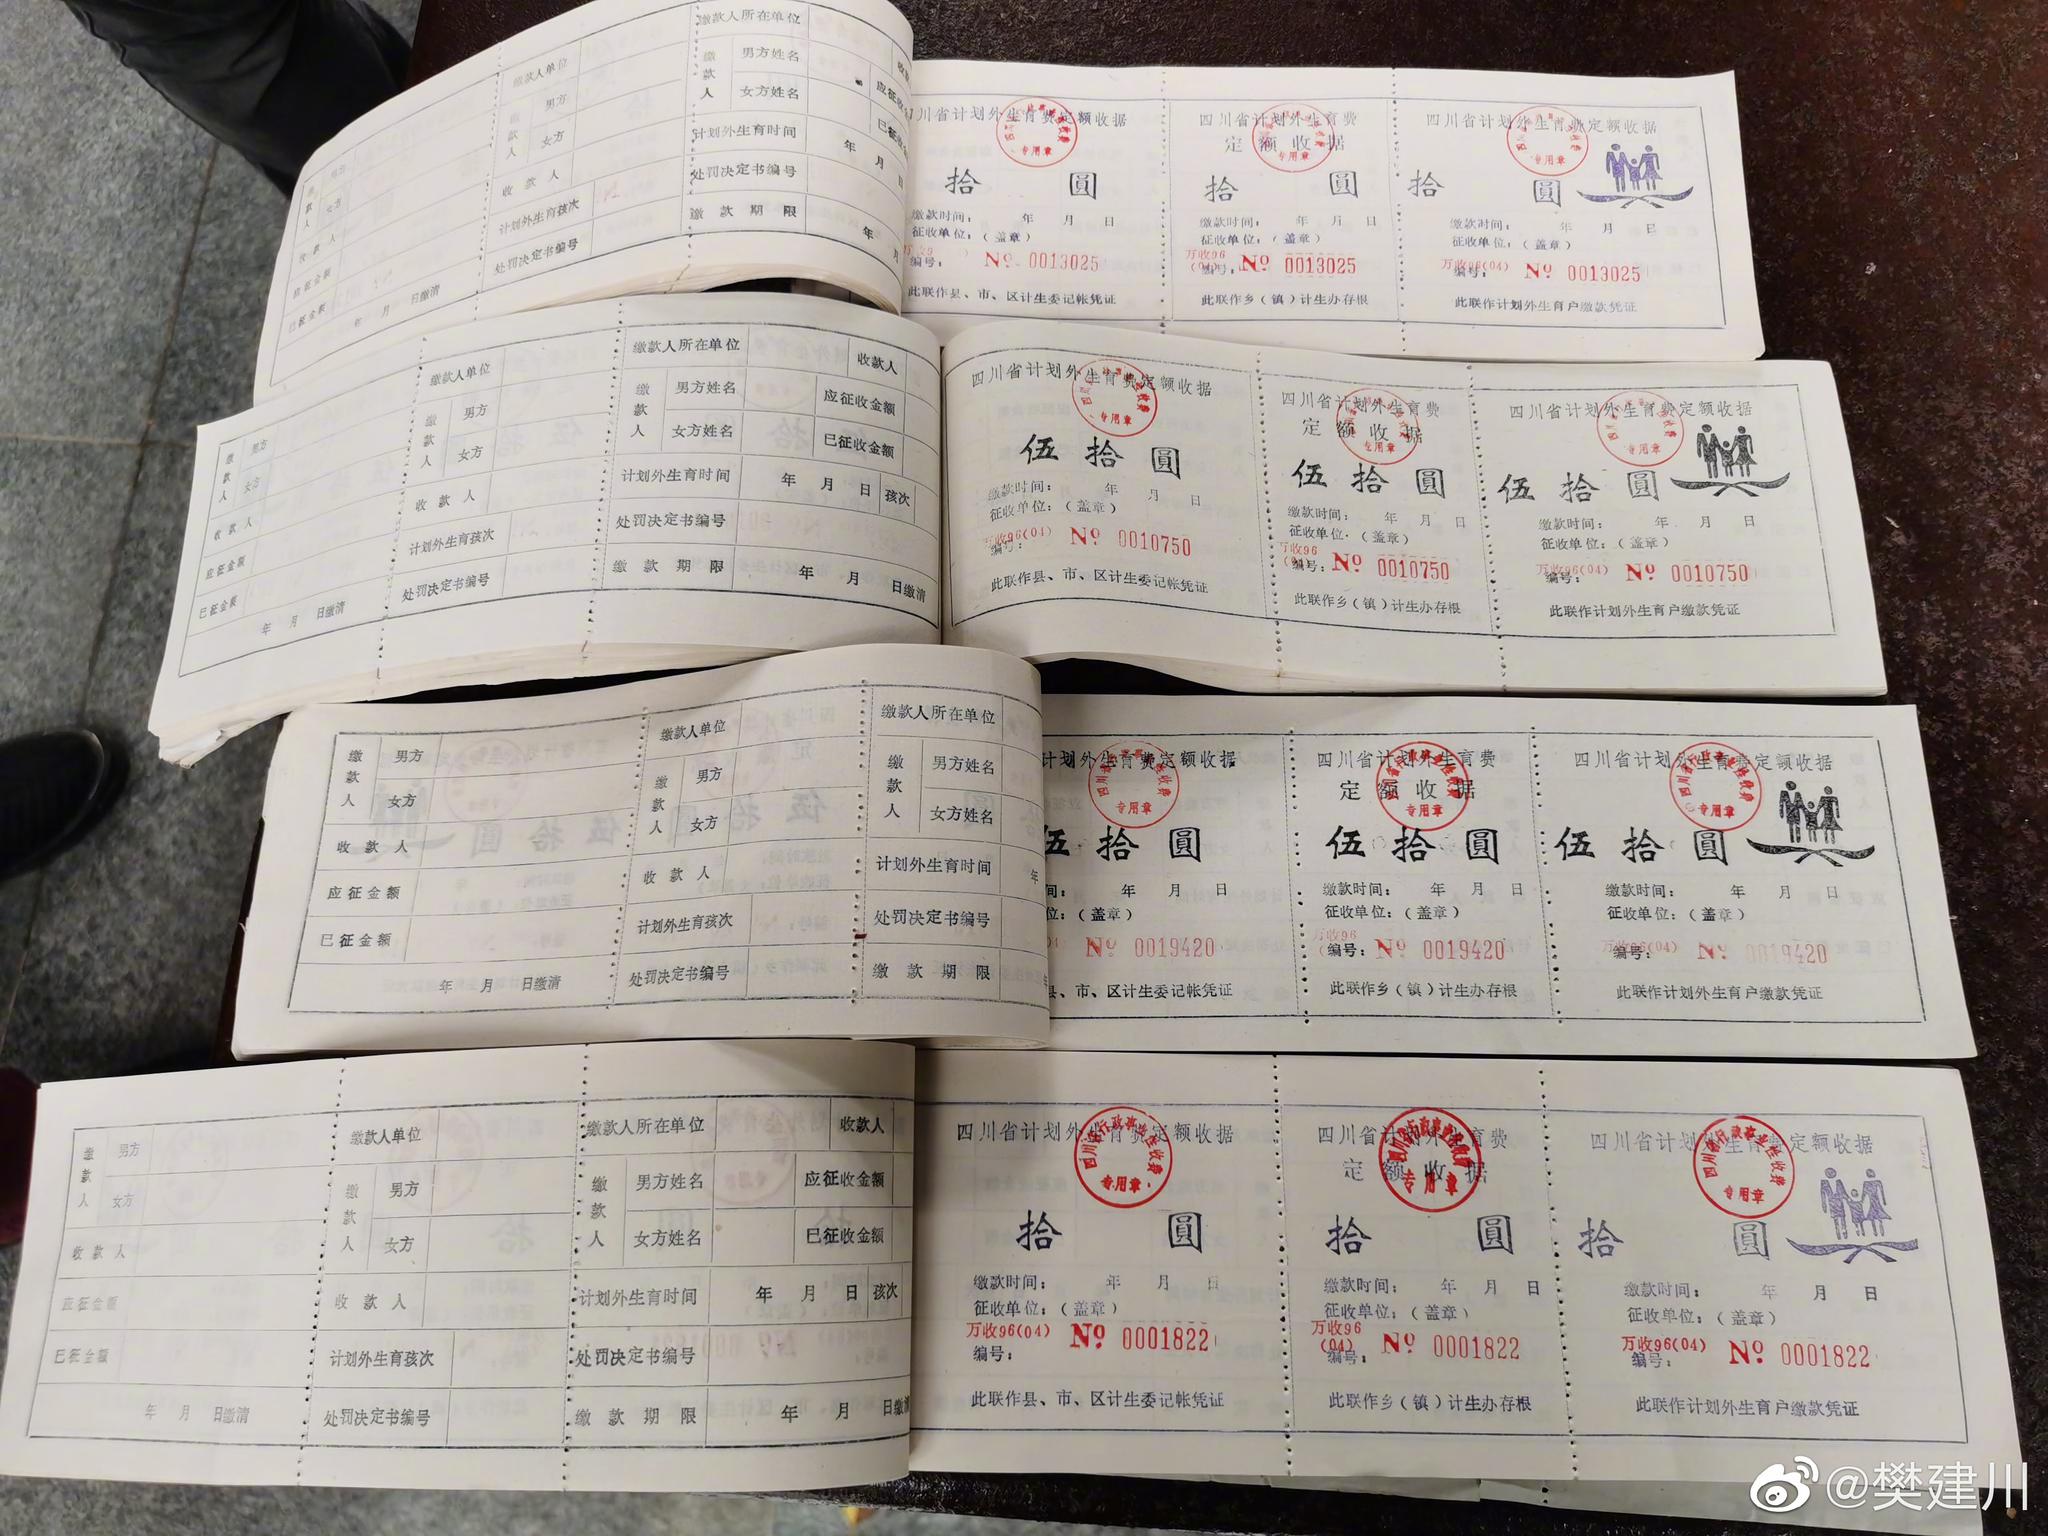 缴款人所在单位
缴款人单位
缴款人
男方姓名
女方姓名
男方
女方
收款人
计划外生育时间
年 月 日
处罚决定书编号
计划外生育孩次
缴款期限
处罚决定书编号
应征金额
已征金额
年 月 日缴清
四川省计划外生育费定额收据
拾 圆
缴款时间: 年 月 日
征收单位:(盖章)
编号: No 0013025
此联作县、市、区计生委记帐凭证
四川省计划外生育费
定额收据
专用章
拾 圆
缴款时间: 年 月 日
征收单位:(盖章)
万收96(04)
编号: No 0013025
此联作乡(镇)计生办存根
四川省计划外生育费定额收据
专用章
拾 圆
缴款时间: 年 月 日
征收单位:(盖章)
万收96(04)
编号: No 0013025
此联作计划外生育户缴款凭证
缴款人
男方
女方
收款人
应征金额
已征金额
年 月 日缴清
缴款人单位
缴款人
男方
女方
收款人
计划外生育孩次
处罚决定书编号
缴款人所在单位
收款人
缴款人
男方姓名
应征收金额
女方姓名
已征收金额
计划外生育时间
年 月 日
孩次
处罚决定书编号
缴款期限
年 月 日缴清
四川省计划外生育费定额收据
专用章
伍拾圆
缴款时间: 年 月 日
征收单位:(盖章)
万收96(04)
编号: No 0010750
此联作县、市、区计生委记帐凭证
四川省计划外生育费
定额收据
专用章
伍拾圆
缴款时间: 年 月 日
征收单位:(盖章)
万收96
编号: No 0010750
此联作乡(镇)计生办存根
四川省计划外生育费定额收据
专用章
伍拾圆
缴款时间: 年 月 日
征收单位:(盖章)
万收96(04)
编号: No 0010750
此联作计划外生育户缴款凭证
缴款人
男方
女方
收款人
应征金额
已征金额
年 月 日缴清
缴款人单位
缴款人
男方
女方
收款人
计划外生育孩次
处罚决定书编号
缴款人所在单位
缴款人
男方姓名
女方姓名
计划外生育时间
年
处罚决定书编号
缴款期限
年
计划外生育费定额收据
专用章
伍拾圆
间: 年 月 日
位:(盖章)
No 0019420
县、市、区计生委记帐凭证
四川省计划外生育费
定额收据
专用章
伍拾圆
缴款时间: 年 月 日
征收单位:(盖章)
万收96
编号: No 0019420
此联作乡(镇)计生办存根
四川省计划外生育费定额收据
专用章
伍拾圆
缴款时间: 年 月 日
征收单位:(盖章)
万收96(04)
编号: No 0019420
此联作计划外生育户缴款凭证
缴款人
男方
女方
收款人
应征金额
已征金额
年 月 日缴清
缴款人单位
缴款人
男方
女方
收款人
计划外生育孩次
处罚决定书编号
缴款人所在单位
收款人
缴款人
男方姓名
应征收金额
女方姓名
已征收金额
计划外生育时间
年 月 日
孩次
处罚决定书编号
缴款期限
年 月 日缴清
四川省计划外生育费定额收据
四川省行政事业性收费
专用章
拾 圆
缴款时间: 年 月 日
征收单位:(盖章)
万收96(04)
编号: No 0001822
此联作县、市、区计生委记帐凭证
四川省计划外生育费
定额收据
四川省行政事业性收费
专用章
拾 圆
缴款时间: 年 月 日
征收单位:(盖章)
万收96
(04)
编号: No 0001822
此联作乡(镇)计生办存根
四川省计划外生育费定额收据
四川省行政事业性收费
专用章
拾 圆
缴款时间: 年 月 日
征收单位:(盖章)
万收96(04)
编号: No 0001822
此联作计划外生育户缴款凭证
@樊建川